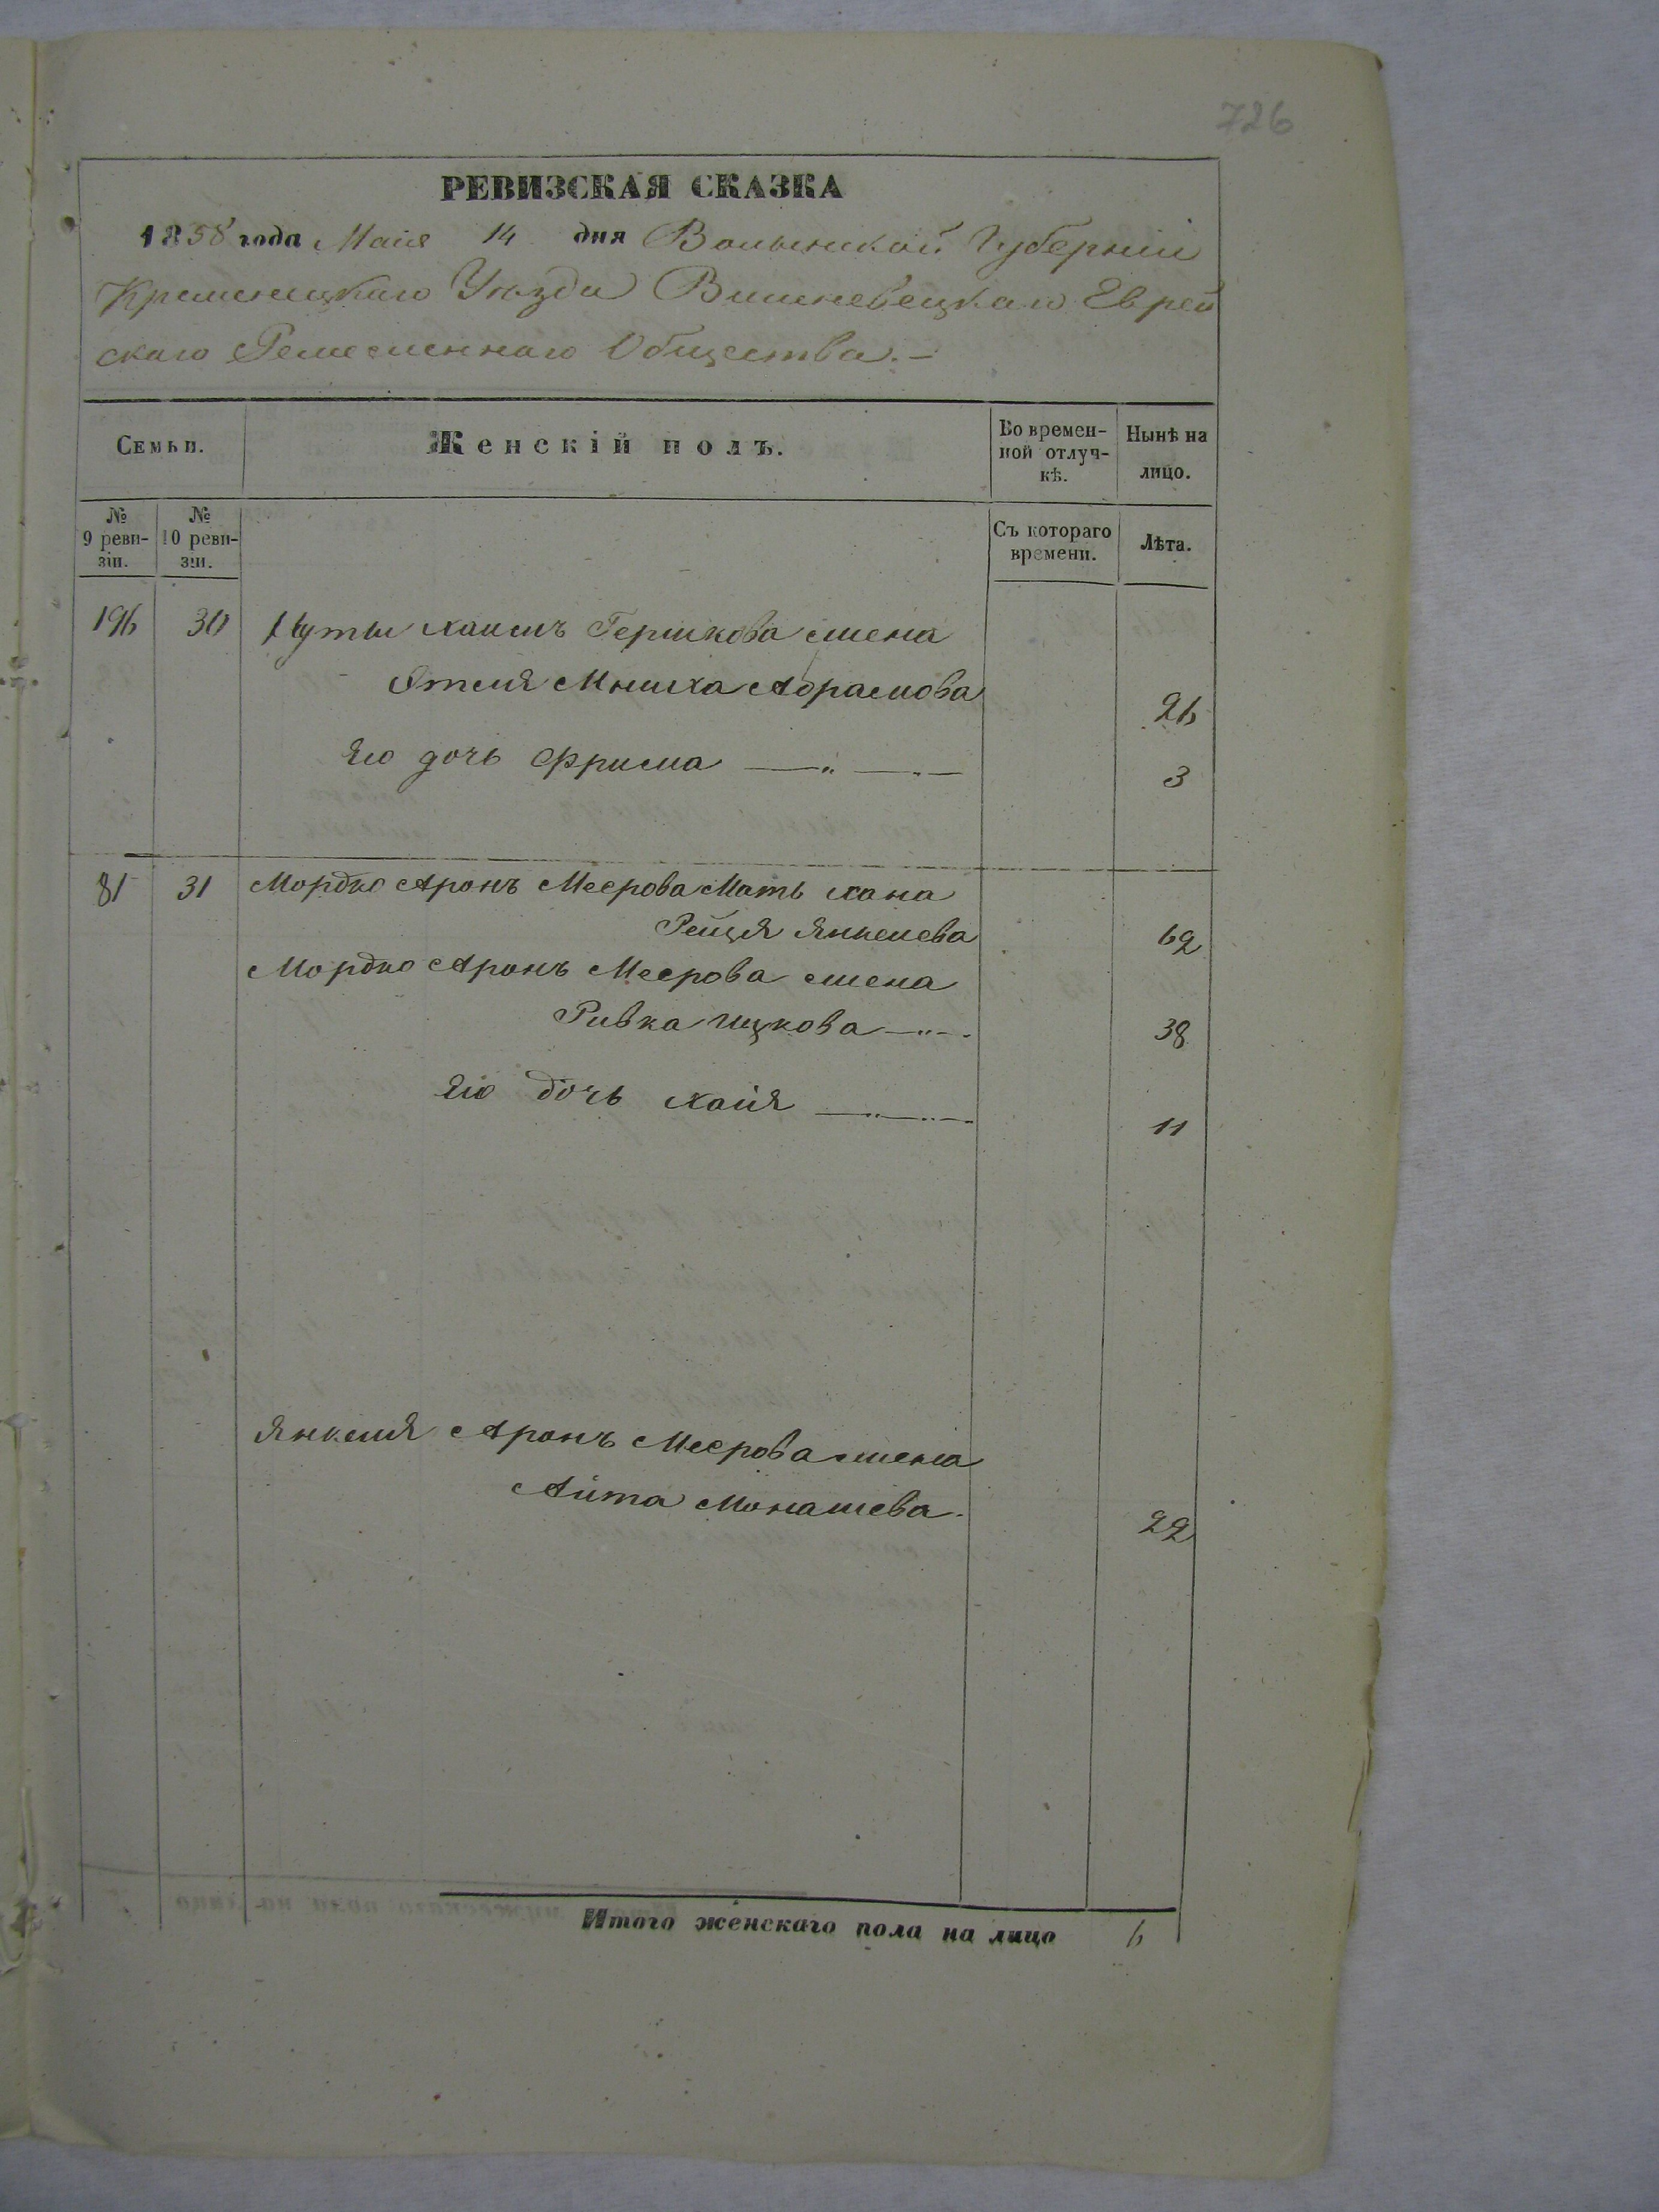 726
РЕВИЗСКАЯ СКАЗКА
1858 года Маія 14 дня Волынской Губерніи
Кременецкаго Уѣзда Вишневецкаго Еврей
скаго Ремесленнаго Общества.-
Семьи.
Женскій полъ.
Во времен-
ной отлуч-
кѣ.
Нынѣ на
лицо.
№
9 реви-
зіи.
№
10 реви-
зіи.
Съ котораго
времени.
Лѣта.
196 30 Нуты Хаимъ Гершкова жена
Этля Абрамова 26
Его дочь Фрима 3
81 31 Мордко Аронъ Меерова Мать Хана
Рейця Янкелева 62
Мордко Аронъ Меерова жена
Ривка Ицкова 38
Его дочь Хаія 11
Янкеля Аронъ Меерова жена
Айта Монашева. 22
Итого женскаго пола на лицо 6